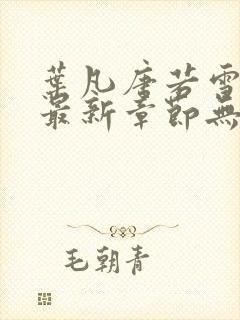 葉凡唐若雪
最新章節無
毛朝青